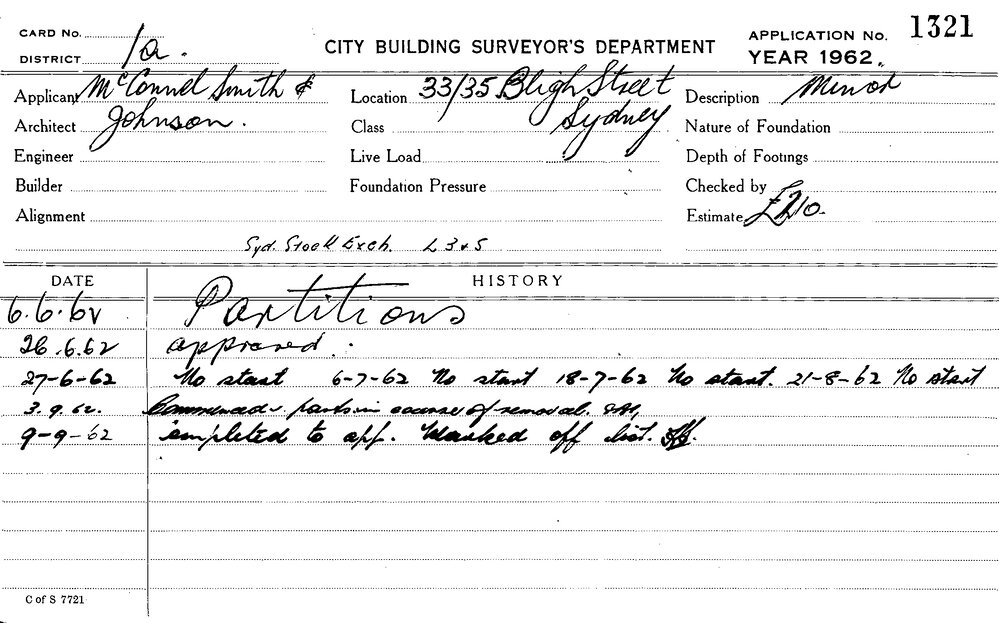 CARD No.
DISTRICT 1a.
CITY BUILDING SURVEYOR'S DEPARTMENT
APPLICATION No. 1321
YEAR 1962.
Applicant McConnel Smith &
Architect Johnson.
Engineer
Builder
Alignment
Location 33/35 Bligh Street
Class Sydney
Live Load
Foundation Pressure
Description Minor
Nature of Foundation
Depth of Footings
Checked by
Estimate £210.
Syd. Stock Exch. L 3 & 5
DATE HISTORY
6.6.62 Partitions
26.6.62 approved.
27-6-62 No start 6-7-62 No start 18-7-62 No start. 21-8-62 No start
3.9.62. Commenced in course of removal.
9-9-62 completed to app. Marked off list.
C of S 7721